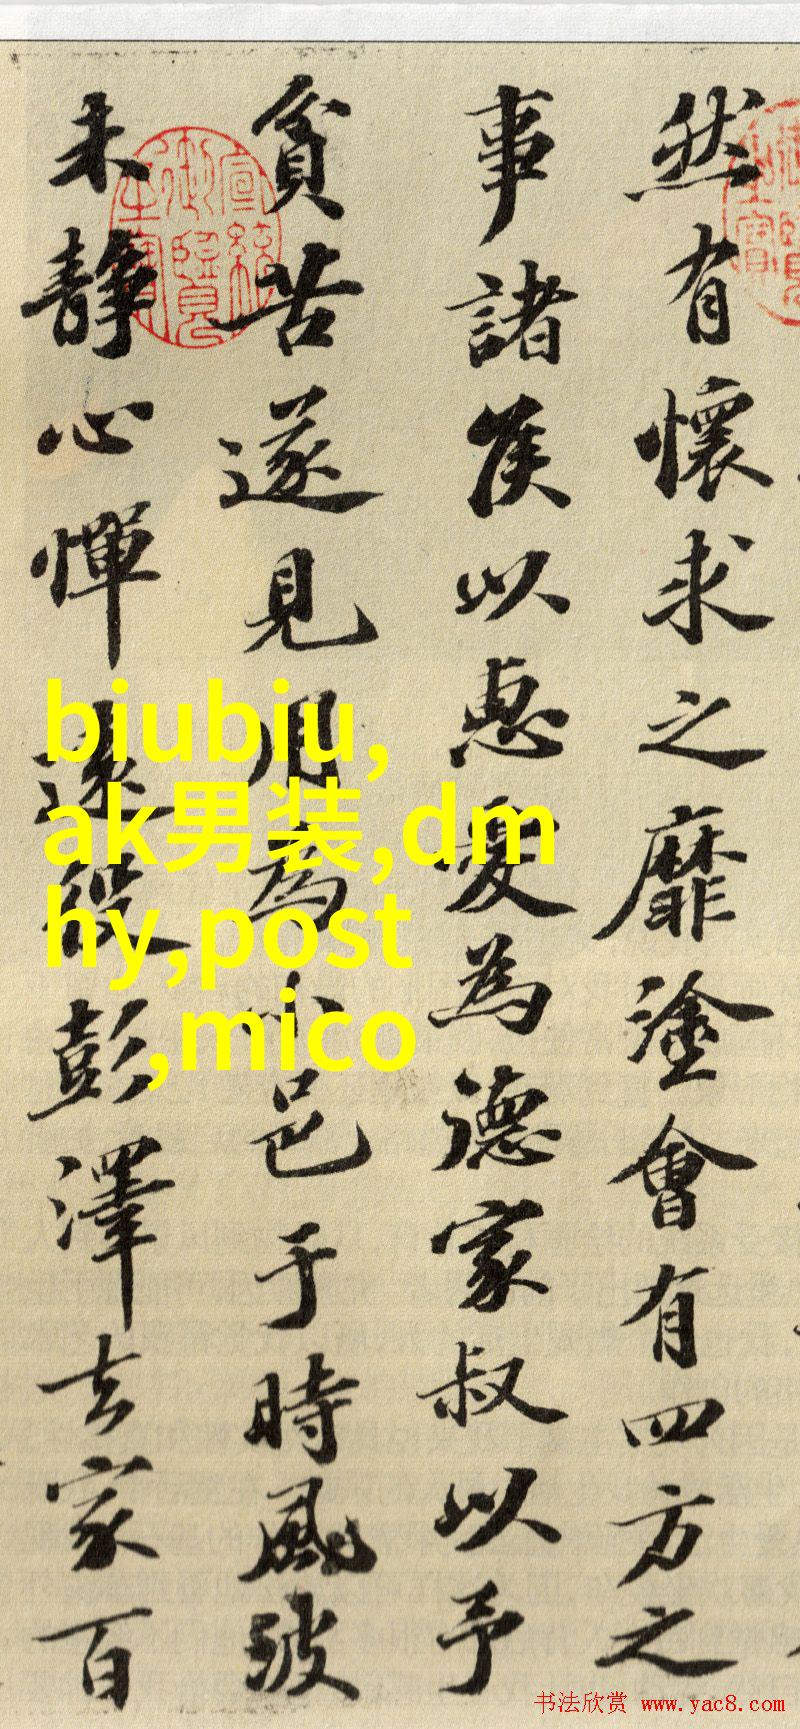 然有懷求之靡塗會有四方之
事諸侯以惠愛為德家叔以予
貧苦遂見用為小邑于時風波
未靜心憚遠役彭澤去家百
宣統
御覽
之寶
biubiu,
ak男装,dm
hy,post
,mico
书法欣赏 www.yac8.com